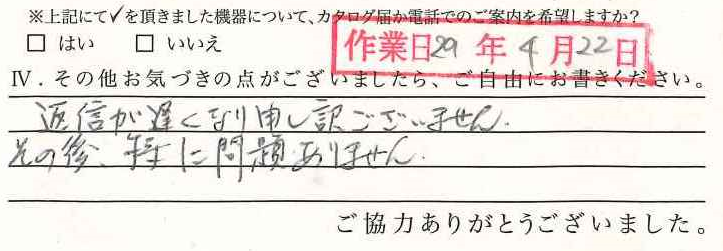 ※上記にて✓を頂きました機器について、カタログ届か電話でのご案内を希望しますか？
□ はい　□ いいえ
作業日29年4月22日
Ⅳ．その他お気づきの点がございましたら、ご自由にお書きください。
返信が遅くなり申し訳ございません.
その後、特に問題ありません.
ご協力ありがとうございました。